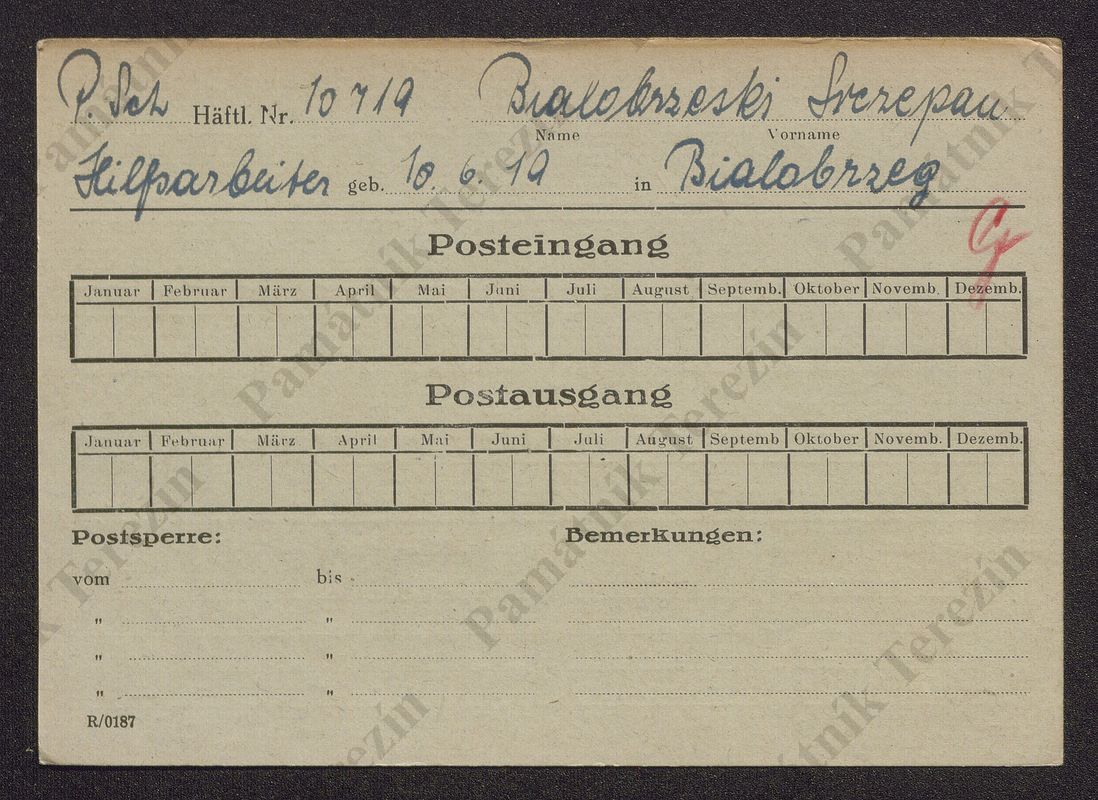 P. Sch Häftl. Nr. 10719 Bialobrzeski Szczepan
Name Vorname
Hilfsarbeiter geb. 10. 6. 19 in Bialobrzeg
Posteingang
Januar Februar März April Mai Juni Juli August Septemb. Oktober Novemb. Dezemb.
Postausgang
Januar Februar März April Mai Juni Juli August Septemb Oktober Novemb. Dezemb.
Postsperre: Bemerkungen:
vom bis
" "
" "
" "
R/0187
Památník Terezín